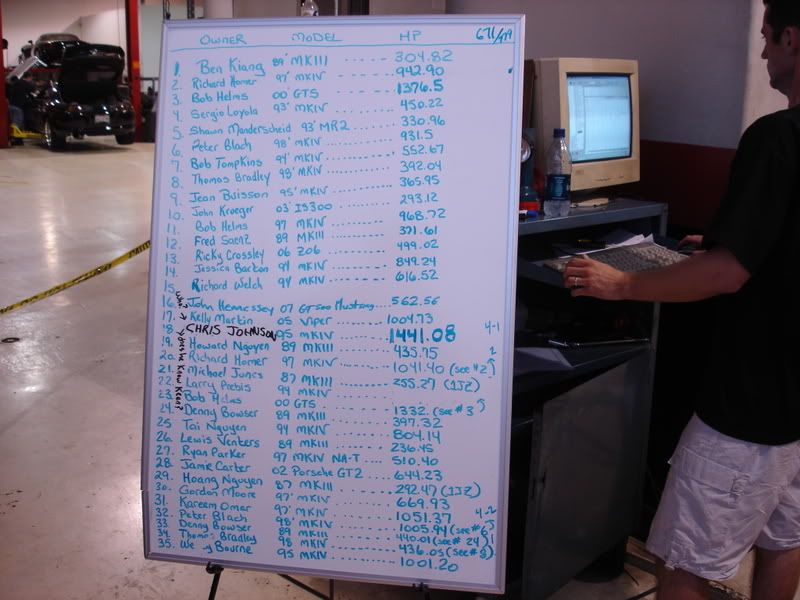 OWNER MODEL HP 671/479
1. Ben Kiang 89' MKIII ---- 304.82
2. Richard Homer 97' MKIV ---- 942.90
3. Bob Helms 00' GTS ---- 1376.5
4. Sergio Loyola 93' MKIV ---- 450.22
5. Shawn Manderscheid 93' MR2 ---- 330.96
6. Peter Blach 98' MKIV ---- 931.5
7. Bob Tompkins 94' MKIV ---- 552.67
8. Thomas Bradley 98' MKIV ---- 392.04
9. Jean Buisson 95' MKIV ---- 365.95
10. John Krueger 03' IS300 ---- 293.12
11. Bob Helms 97 MKIV ---- 968.72
12. Fred Saenz 89 MKIII ---- 371.61
13. Ricky Crossley 06 Z06 ---- 499.02
14. Jessica Barton 94 MKIV ---- 849.24
15. Richard Welch 94 MKIV ---- 616.52
16. John Hennessey 07 GT500 Mustang ---- 562.56
17. Kelly Martin 05 Viper ---- 1004.73
18. CHRIS JOHNSON 95 MKIV ---- 1441.08 4-1
19. Howard Nguyen 89 MKIII ---- 435.75
20. Richard Homer 97 MKIV ---- 1041.40 (see #2)
21. Michael Jones 87 MKIII ---- 255.27 (1JZ)
22. Larry Prebis 94 MKIV
23. Bob Helms 00 GTS ---- 1332. (see #3)
24. Denny Bowser 89 MKIII ---- 397.32
25 Tai Nguyen 94 MKIV ---- 804.14
26. Lewis Venters 89 MKIII ---- 236.45
27. Ryan Parker 97 MKIV NA-T ---- 510.40
28. Jamie Carter 02 Porsche GT2 ---- 644.23
29. Hoang Nguyen 87 MKIII ---- 292.47 (1JZ)
30. Gordon Moore 97' MKIV ---- 669.93
31. Kareem Omar 97' MKIV ---- 1051.37 4-2
32. Peter Blach 98' MKIV ---- 1005.94 (see #6)
33. Denny Bowser 89 MKIII ---- 440.01 (see #24)
34. Thomas Bradley 98 MKIV ---- 436.05 (see #8)
35. Bourne 95 MKIV ---- 1001.20